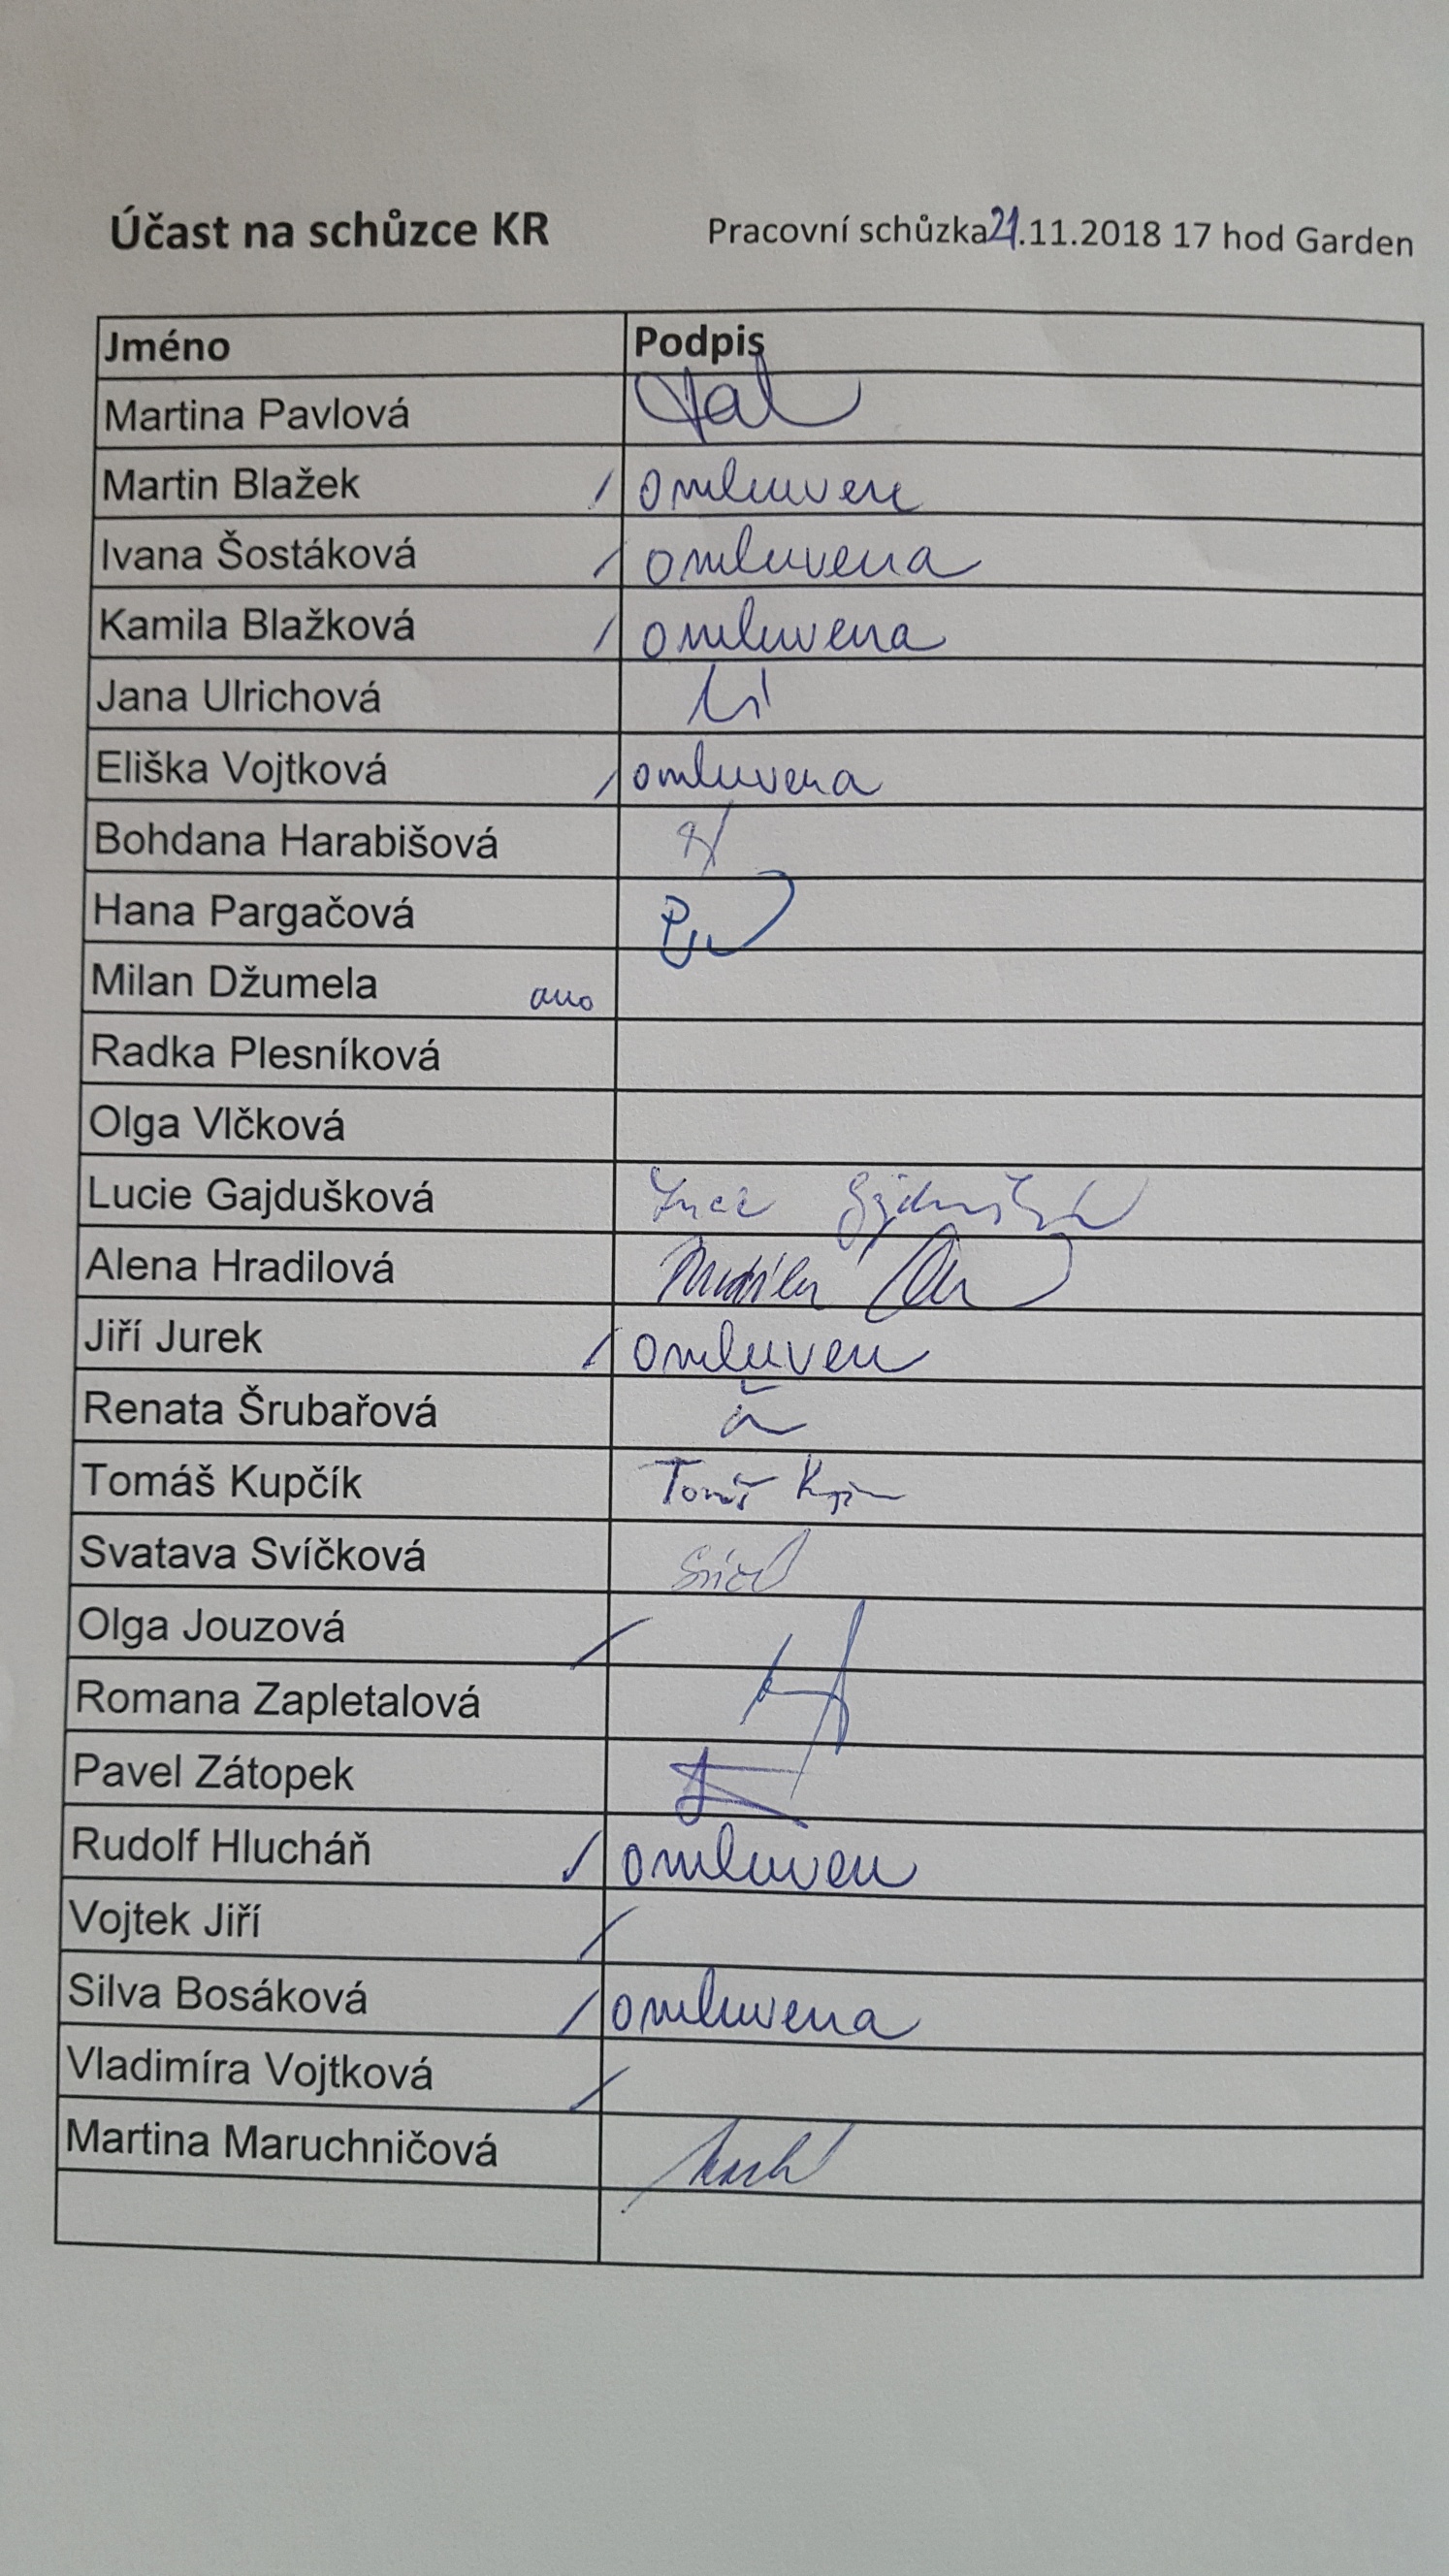 Účast na schůzce KR Pracovní schůzka 21.11.2018 17 hod Garden
Jméno Podpis
Martina Pavlová
Martin Blažek omluven
Ivana Šostáková omluvena
Kamila Blažková omluvena
Jana Ulrichová
Eliška Vojtková omluvena
Bohdana Harabišová
Hana Pargačová
Milan Džumela ano
Radka Plesníková
Olga Vlčková
Lucie Gajdušková
Alena Hradilová
Jiří Jurek omluven
Renata Šrubařová
Tomáš Kupčík Tomáš
Svatava Svíčková
Olga Jouzová
Romana Zapletalová
Pavel Zátopek
Rudolf Hlucháň omluven
Vojtek Jiří
Silva Bosáková omluvena
Vladimíra Vojtková
Martina Maruchničová